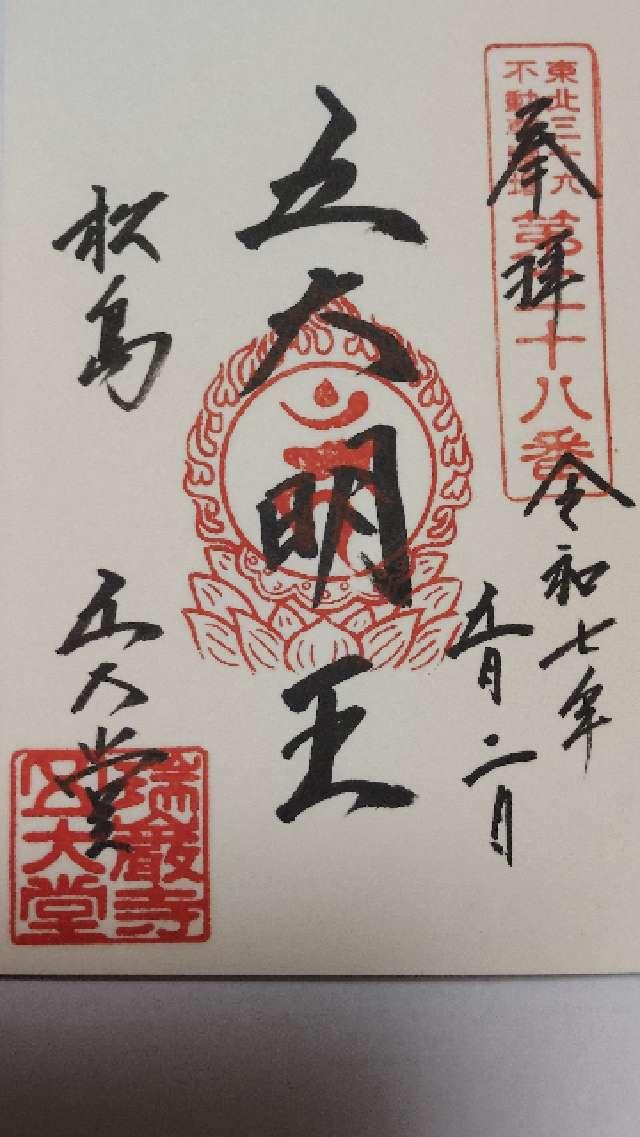 東北三十六
不動尊霊場
第二十八番
奉拝
令和七年
五月二日
五大明王
松島
五大堂
瑞巌寺
五大堂